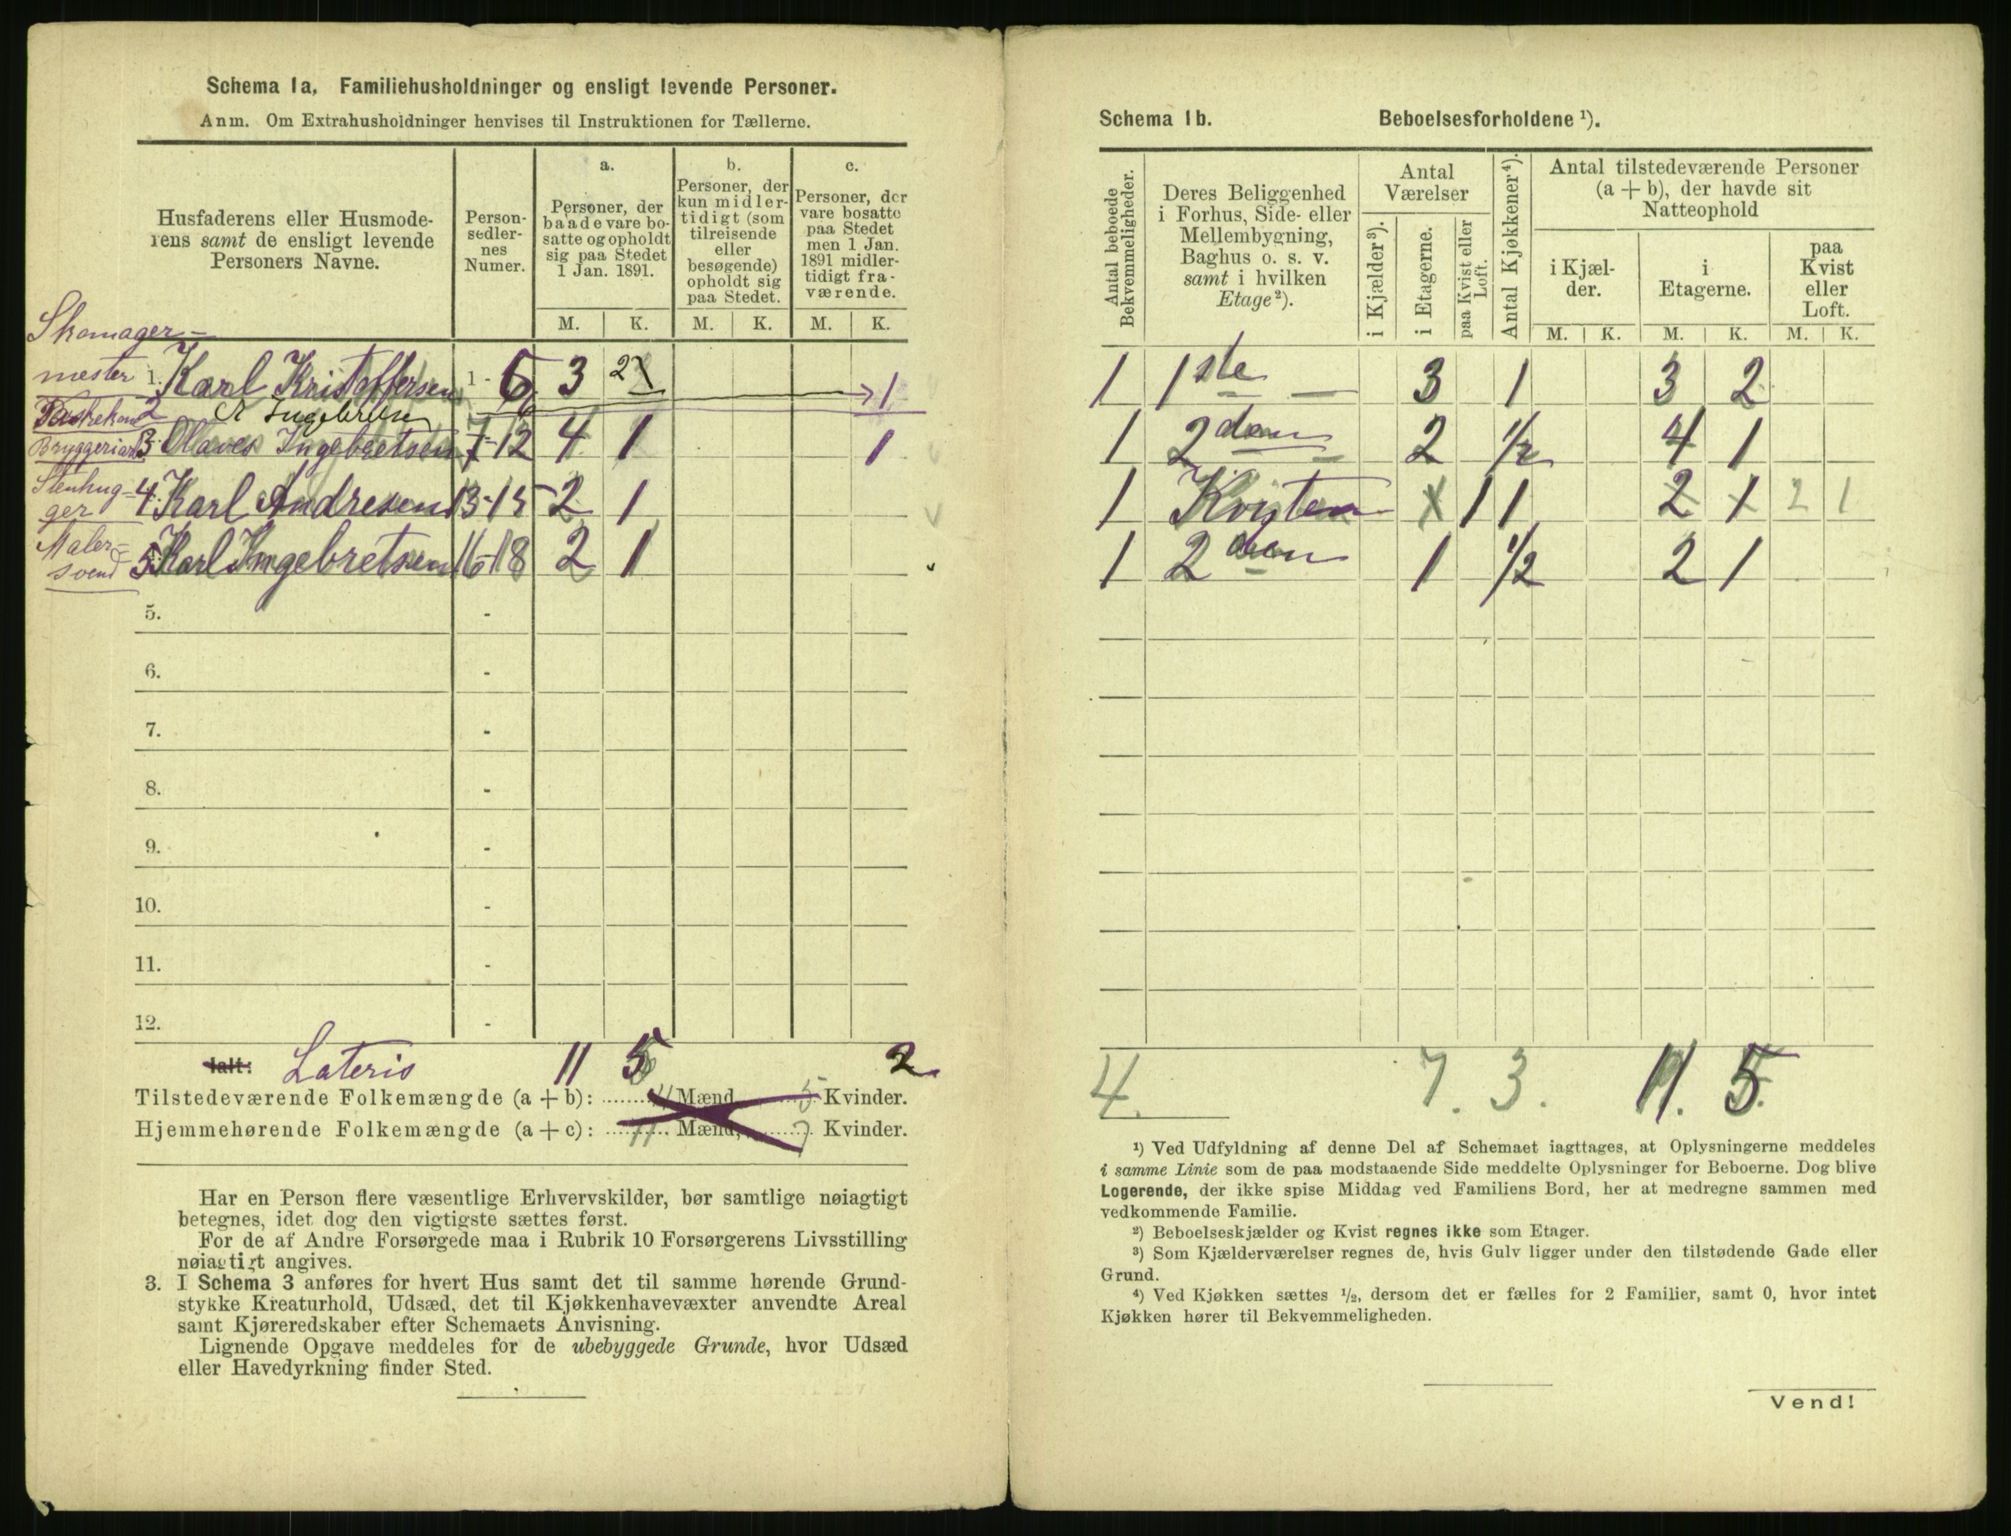 Schema 1a. Familiehusholdninger og ensligt levende Personer.
Anm. Om Extrahusholdninger henvises til Instruktionen for Tællerne.
Husfaderens eller Husmode-
rens samt de ensligt levende
Personers Navne.
Person-
sedler-
nes
Numer.
a.
Personer, der
baade vare bo-
satte og opholdt
sig paa Stedet
1 Jan. 1891.
b.
Personer, der
kun midler-
tidigt (som
tilreisende
eller
besøgende)
opholdt sig
paa Stedet.
c.
Personer, der
vare bosatte
paa Stedet
men 1 Jan.
1891 midler-
tidigt fra-
værende.
M. K. M. K. M. K.
Skomager-
mester 1. Karl Kristoffersen 1 - 6 3 2 1
2 Ingebretsen
Bryggeriarb 3. Olaves Ingebretsen 7-12 4 1 1
Stenhug-
ger 4. Karl Andresen 13-15 2 1
Maler-
svend 5. Karl Ingebretsen 16-18 2 1
5. -
6. -
7. -
8. -
9. -
10. -
11. -
12. -
Ialt: Lateris 11 5 2
Tilstedeværende Folkemængde (a + b): 11 Mænd 5 Kvinder.
Hjemmehørende Folkemængde (a + c): 11 Mænd, 7 Kvinder.
Har en Person flere væsentlige Erhvervskilder, bør samtlige nøiagtigt
betegnes, idet dog den vigtigste sættes først.
For de af Andre Forsørgede maa i Rubrik 10 Forsørgerens Livsstilling
nøiagtigt angives.
3. I Schema 3 anføres for hvert Hus samt det til samme hørende Grund-
stykke Kreaturhold, Udsæd, det til Kjøkkenhavevæxter anvendte Areal
samt Kjøreredskaber efter Schemaets Anvisning.
Lignende Opgave meddeles for de ubebyggede Grunde, hvor Udsæd
eller Havedyrkning finder Sted.
Schema 1b. Beboelsesforholdene ¹).
Antal beboede
Bekvemmeligheder.
Deres Beliggenhed
i Forhus, Side- eller
Mellembygning,
Baghus o. s. v.
samt i hvilken
Etage ²).
Antal
Værelser
i Kjælder ³).
i Etagerne.
paa Kvist eller
Loft.
Antal Kjøkkener ⁴).
Antal tilstedeværende Personer
(a + b), der havde sit
Natteophold
i Kjæl-
der.
i
Etagerne.
paa
Kvist
eller
Loft.
M. K. M. K. M. K.
1 1ste - 3 1 3 2
1 2den 2 1/2 4 1
1 Kvisten 1 1 1 2 1 2 1
1 2den 1 1/2 2 1
4. 7. 3. 11. 5.
¹) Ved Udfyldning af denne Del af Schemaet iagttages, at Oplysningerne meddeles
i samme Linie som de paa modstaaende Side meddelte Oplysninger for Beboerne. Dog blive
Logerende, der ikke spise Middag ved Familiens Bord, her at medregne sammen med
vedkommende Familie.
²) Beboelseskjælder og Kvist regnes ikke som Etager.
³) Som Kjælderværelser regnes de, hvis Gulv ligger under den tilstødende Gade eller
Grund.
⁴) Ved Kjøkken sættes ½, dersom det er fælles for 2 Familier, samt 0, hvor intet
Kjøkken hører til Bekvemmeligheden.
Vend!